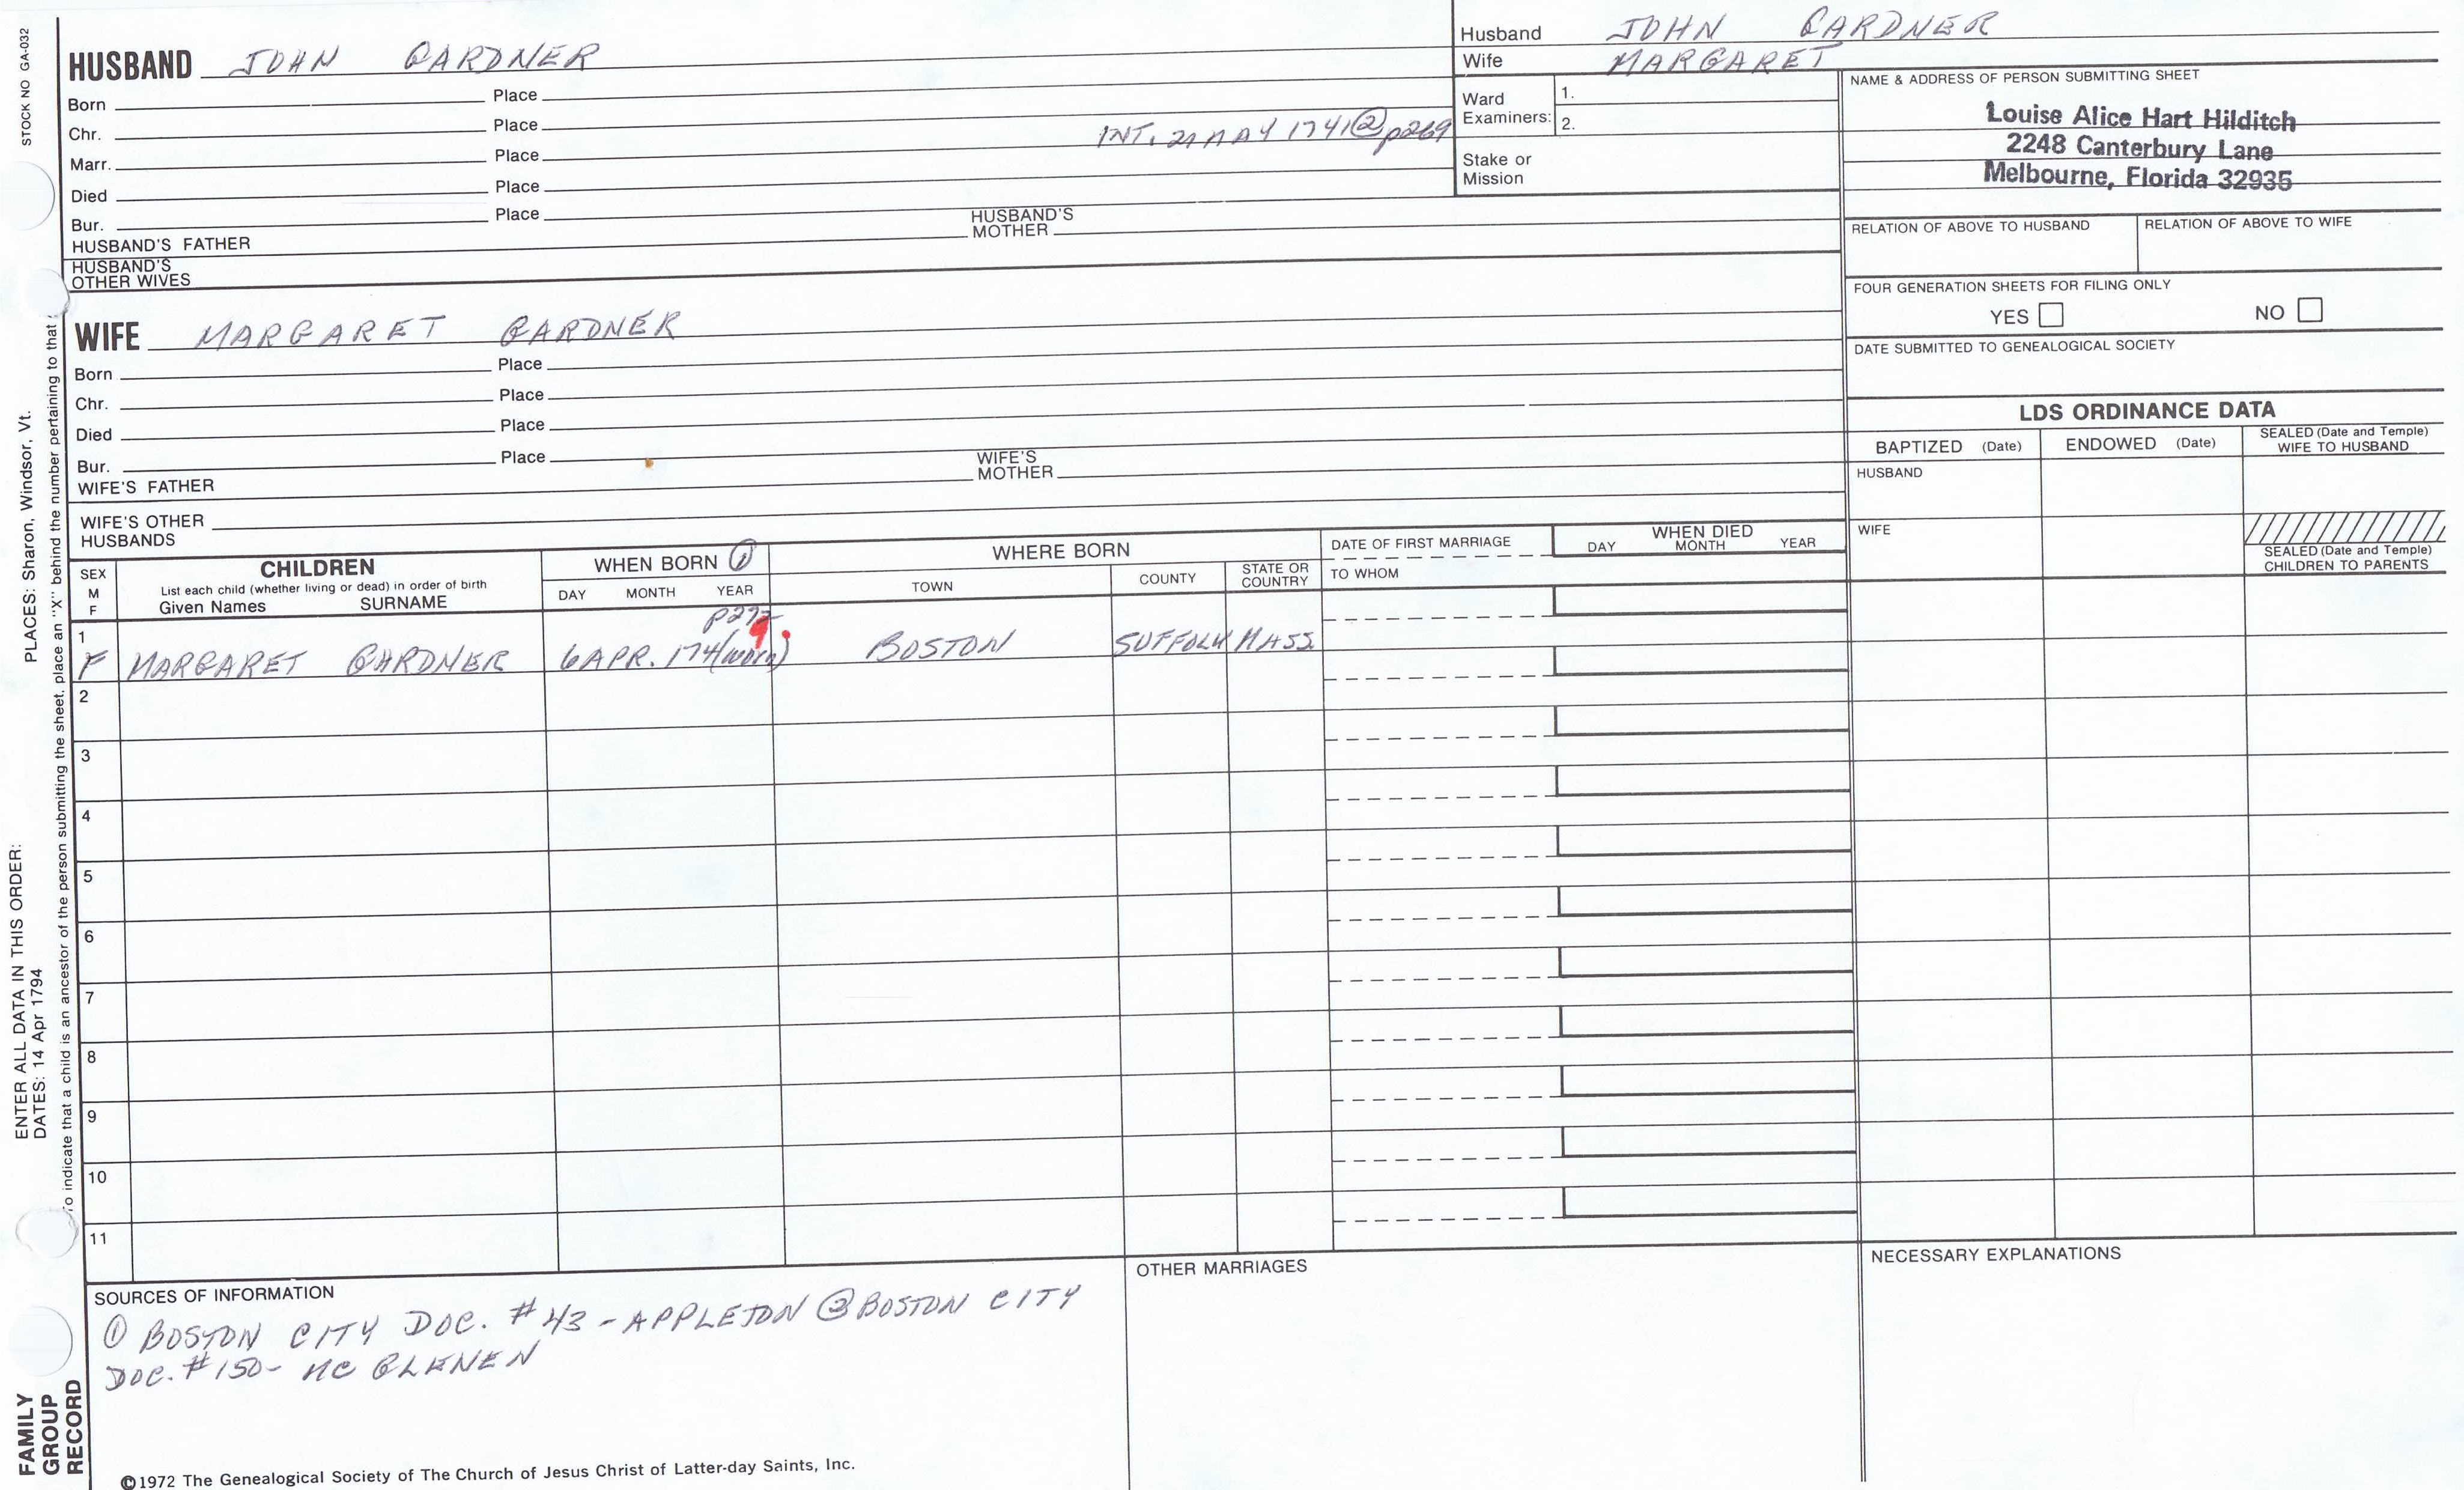 STOCK NO GA-032
HUSBAND JOHN GARDNER
Born Place
Chr. Place
INT. 21 MAY 1741 ② p269
Marr. Place
Died Place
Bur. Place
HUSBAND'S FATHER HUSBAND'S MOTHER
HUSBAND'S
OTHER WIVES
Husband JOHN GARDNER
Wife MARGARET
Ward
Examiners:
1.
2.
Stake or
Mission
NAME & ADDRESS OF PERSON SUBMITTING SHEET
Louise Alice Hart Hilditch
2248 Canterbury Lane
Melbourne, Florida 32935
RELATION OF ABOVE TO HUSBAND RELATION OF ABOVE TO WIFE
FOUR GENERATION SHEETS FOR FILING ONLY
YES NO
DATE SUBMITTED TO GENEALOGICAL SOCIETY
WIFE MARGARET GARDNER
Born Place
Chr. Place
Died Place
Bur. Place
WIFE'S FATHER WIFE'S MOTHER
WIFE'S OTHER
HUSBANDS
LDS ORDINANCE DATA
BAPTIZED (Date) ENDOWED (Date) SEALED (Date and Temple) WIFE TO HUSBAND
HUSBAND
WIFE
SEALED (Date and Temple)
CHILDREN TO PARENTS
SEX
M
F
CHILDREN
List each child (whether living or dead) in order of birth
Given Names SURNAME
WHEN BORN ①
DAY MONTH YEAR
WHERE BORN
TOWN COUNTY STATE OR COUNTRY
DATE OF FIRST MARRIAGE
TO WHOM
WHEN DIED
DAY MONTH YEAR
p272
1
F MARGARET GARDNER 6 APR. 174(worn) 9 BOSTON SUFFOLK MASS
2
3
4
5
6
7
8
9
10
11
SOURCES OF INFORMATION
① BOSTON CITY DOC. #43 - APPLETON ② BOSTON CITY
DOC. #150 - MC GLENEN
OTHER MARRIAGES
NECESSARY EXPLANATIONS
©1972 The Genealogical Society of The Church of Jesus Christ of Latter-day Saints, Inc.
FAMILY
GROUP
RECORD
ENTER ALL DATA IN THIS ORDER:
DATES: 14 Apr 1794
PLACES: Sharon, Windsor, Vt.
To indicate that a child is an ancestor of the person submitting the sheet, place an "X" behind the number pertaining to that